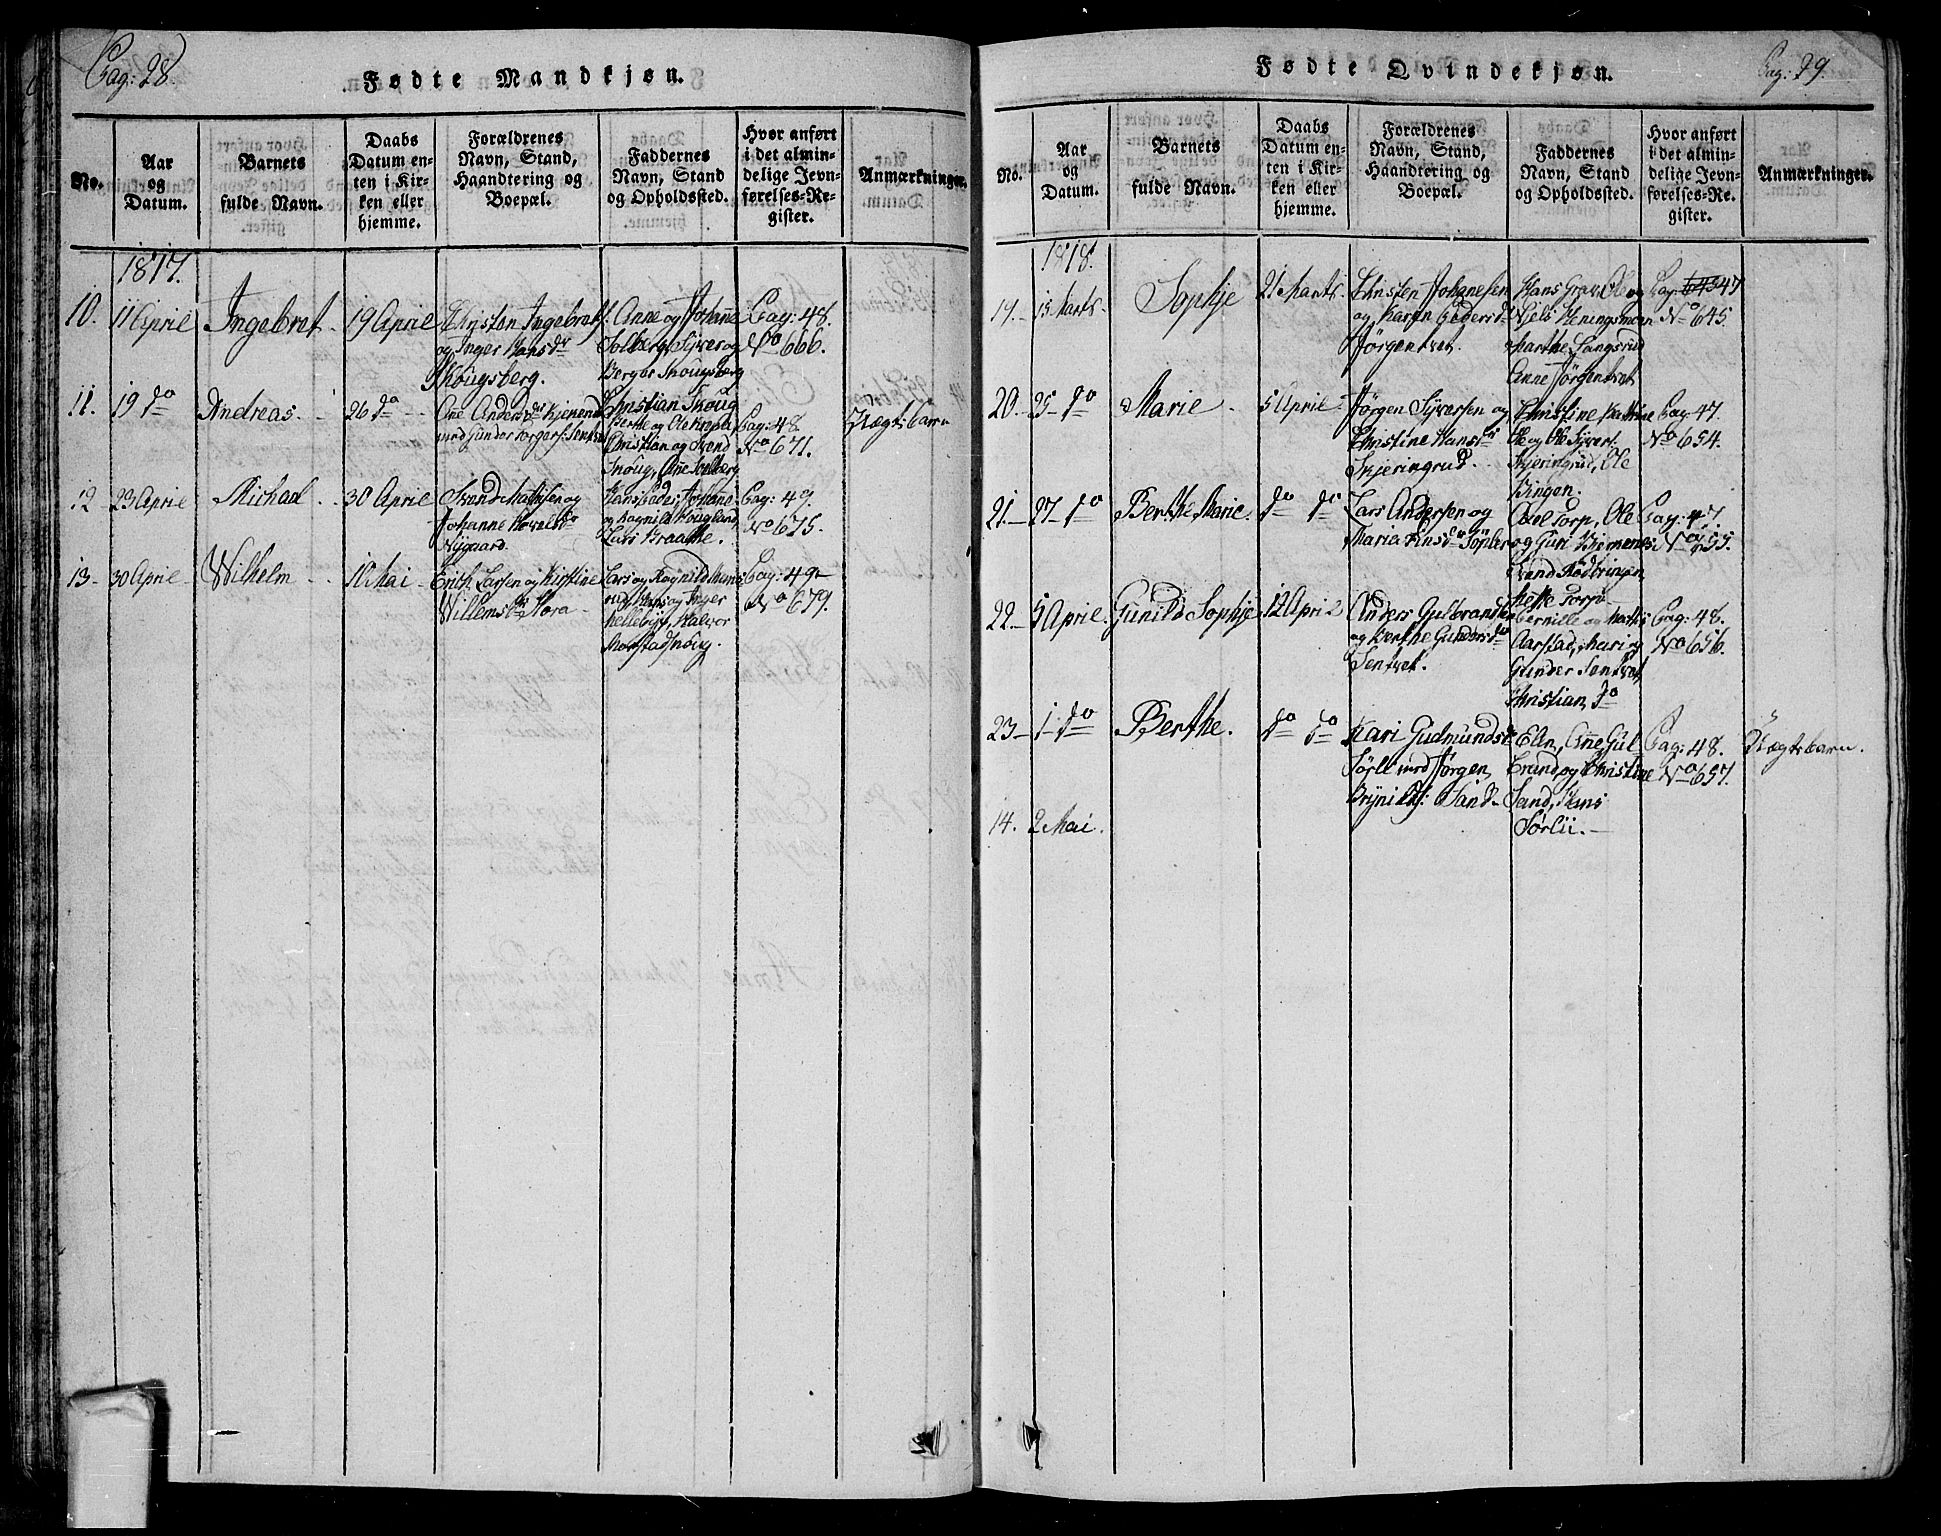 Pag: 28.
Fødte Mandkjøn.
No.
Aar
og
Datum.
Barnets
fulde Navn.
Daabs
Datum en-
ten i Kir-
ken eller
hjemme.
Forældrenes
Navn, Stand,
Haandtering og
Boepæl.
Faddernes
Navn, Stand
og Opholdssted.
Hvor anført
i det almin-
delige Jevn-
førelses-Re-
gister.
Anmærkninger.
1817.
10.
11 April
Ingebret
19 April
Christen Ingebretss.
og Inger Hansdr
Skougsberg.
Anne og Johane
Solberg, Syver og
Skougsberg
Pag: 48.
No 666.
11.
19 do
Andreas.
26 do
Ane Andersdr
med Gunder Torgers:
Christian Skoug
Berthe og Ole
Christian og Svend
Skoug, Ane Solberg
Pag: 48.
No 671.
Uægte barn
12
23 April
Michael
30 April
Svend
og
Johanne
Nygaard.
Johanne
og Ragnild Hougland,
Lars Braathe.
Pag: 49.
No 675.
13
30 April
Wilhelm
10 Mai
Erich Larsen og Kirstine
Willemsdr Mora
Lars og Ragnild
og Inger
Kellebye, Halvor
Pag: 49
No 679.
Pag: 29.
Fødte Qvindekjøn.
No.
Aar
og
Datum.
Barnets
fulde Navn.
Daabs
Datum en-
ten i Kir-
ken eller
hjemme.
Forældrenes
Navn, Stand,
Haandtering og
Boepæl.
Faddernes
Navn, Stand
og Opholdssted.
Hvor anført
i det almin-
delige Jevn-
førelses-Re-
gister.
Anmærkninger.
1818.
19.
15 Marts.
Sophje
21 Marts.
Christen Johanesen
og Karen Pedersdr
Jørgentvet.
Hans Grav, Ole og
Niels Heningsmoen
Marthe Langsrud
Anne Jørgentvet
Pag: 645 47
No 645.
20.
25 do
Marie
5 April
Jørgen Syversen og
Christine Hansdr
Skjeringrud.
Christine Kathrine
Ole og Ole Syvers:
Skjeringrud, Ole
Bingen.
Pag: 47.
No 654.
21.
27 do
Berthe Marie.
do do
Lars Andersen og
Maria
Axel Torp, Ole
og Guri
Svend Rødbyngen,
Mette Torp
Pag: 47.
No 655.
22
5 April.
Gunild Sophje
12 April
Anders Gulbrandsen
og Berthe Gundersdr
Sentvet.
Pernille og Mathis
Aarstad, Mari og
Gunder Sentvet
Christian do
Pag: 48.
No 656.
23
1 do
Berthe.
do do
Kari Gudmundsdr
Sørlii med Jørgen
Brynilds: Sand
Elen, Ane Gul
brand, og Christine
Sand, Hans
Sørlii.
Pag: 48.
No 657.
Uægte barn.
14.
2 Mai.